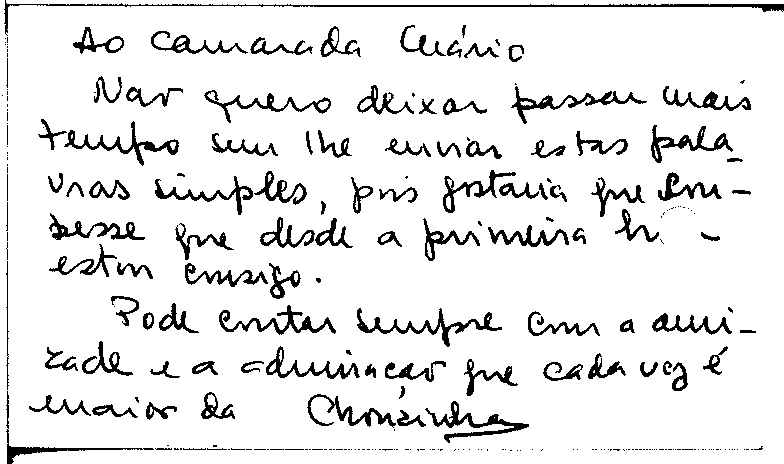 Ao camarada Mário
Não quero deixar passar mais
tempo sem lhe enviar estas pala-
vras simples, pois gostaria que sou-
besse que desde a primeira h -
estou consigo.
Pode contar sempre com a ami-
zade e a admiração que cada vez é
maior da